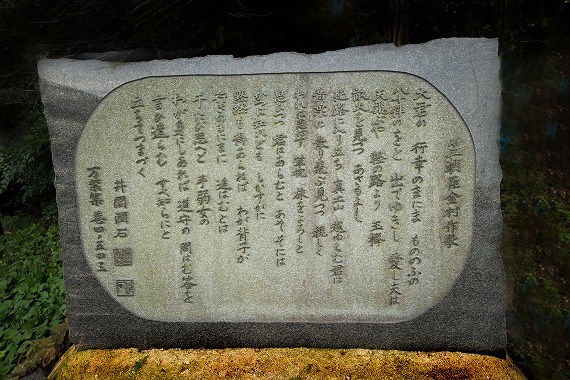 笠朝臣金村作歌
大君の 行幸のまにま もののふの
八十伴のをと 出でゆきし 愛し夫は
天飛ぶや 軽の路より 玉襷
畝火を見つつ あさもよし
紀路に入り立ち 真土山 越ゆらむ君は
黄葉の 散り飛ぶ見つつ 親しく
われは思はず 草枕 旅をよろしと
思ひつつ 君はあらむと あそそには
かつは知れども しかすがに
黙然得あらねば わが背子が
行きのまにまに 追はむとは
千たび思へど 手弱女の
わが身にしあれば 道守の 問はむ答を
言ひ遣らむ すべ知らにと
立ちてつまづく
万葉集 巻四・五四三